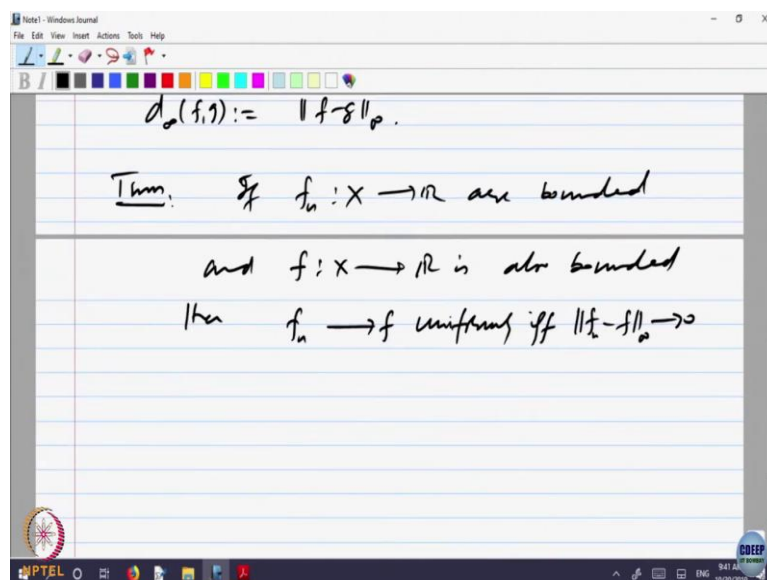 Note1 - Windows Journal
File Edit View Insert Actions Tools Help
B I
d∞(f,g) := ‖f-g‖∞.
Thm. If fn : X → ℝ are bounded
and f : X → ℝ is also bounded
then fn → f uniformly iff ‖fn - f‖∞ → 0
NPTEL
ENG
9:41 AM
CDEEP
IIT BOMBAY